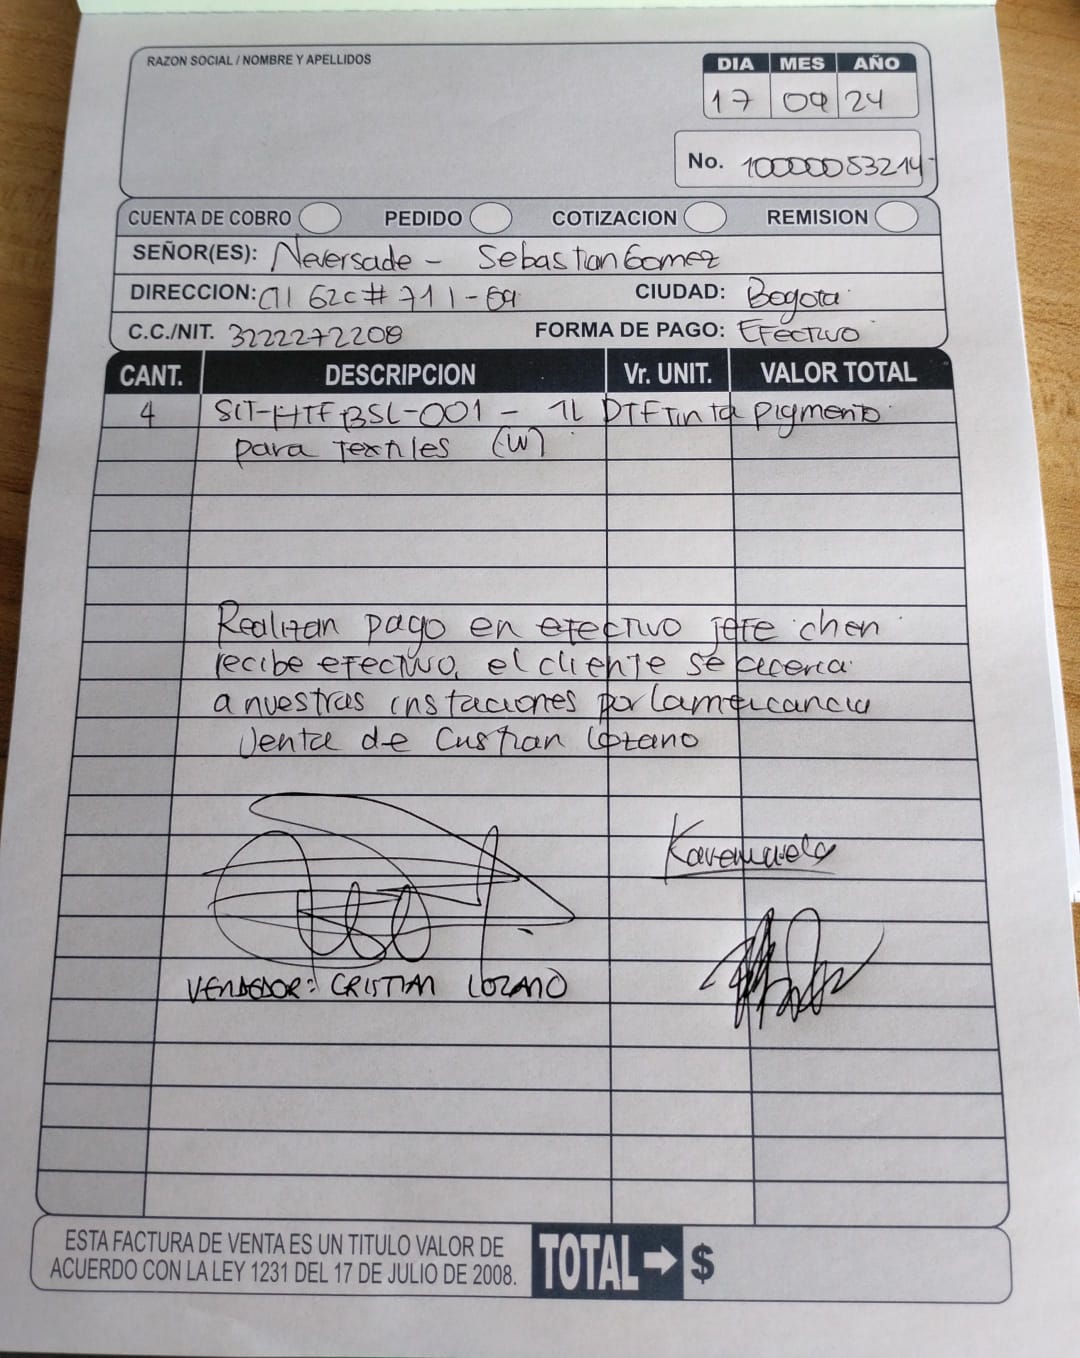 RAZON SOCIAL / NOMBRE Y APELLIDOS
DIA MES AÑO
17 09 24
No. 10000053214
CUENTA DE COBRO PEDIDO COTIZACION REMISION
SEÑOR(ES): Neversade - Sebastian Gomez
DIRECCION: Cl 62c # 71 I - 69 CIUDAD: Bogota
C.C./NIT. 3222272208 FORMA DE PAGO: Efectivo
CANT. DESCRIPCION Vr. UNIT. VALOR TOTAL
4 SCT-HTFBSL-001 - 1L DTF Tinta pigmento
para Textiles (W)
Realizan pago en efectivo jefe chen
recibe efectivo, el cliente se acerca
a nuestras instaciones por la mercancia
Venta de Cristian Lozano
VENDEDOR: CRISTIAN LOZANO
ESTA FACTURA DE VENTA ES UN TITULO VALOR DE
ACUERDO CON LA LEY 1231 DEL 17 DE JULIO DE 2008.
TOTAL → $